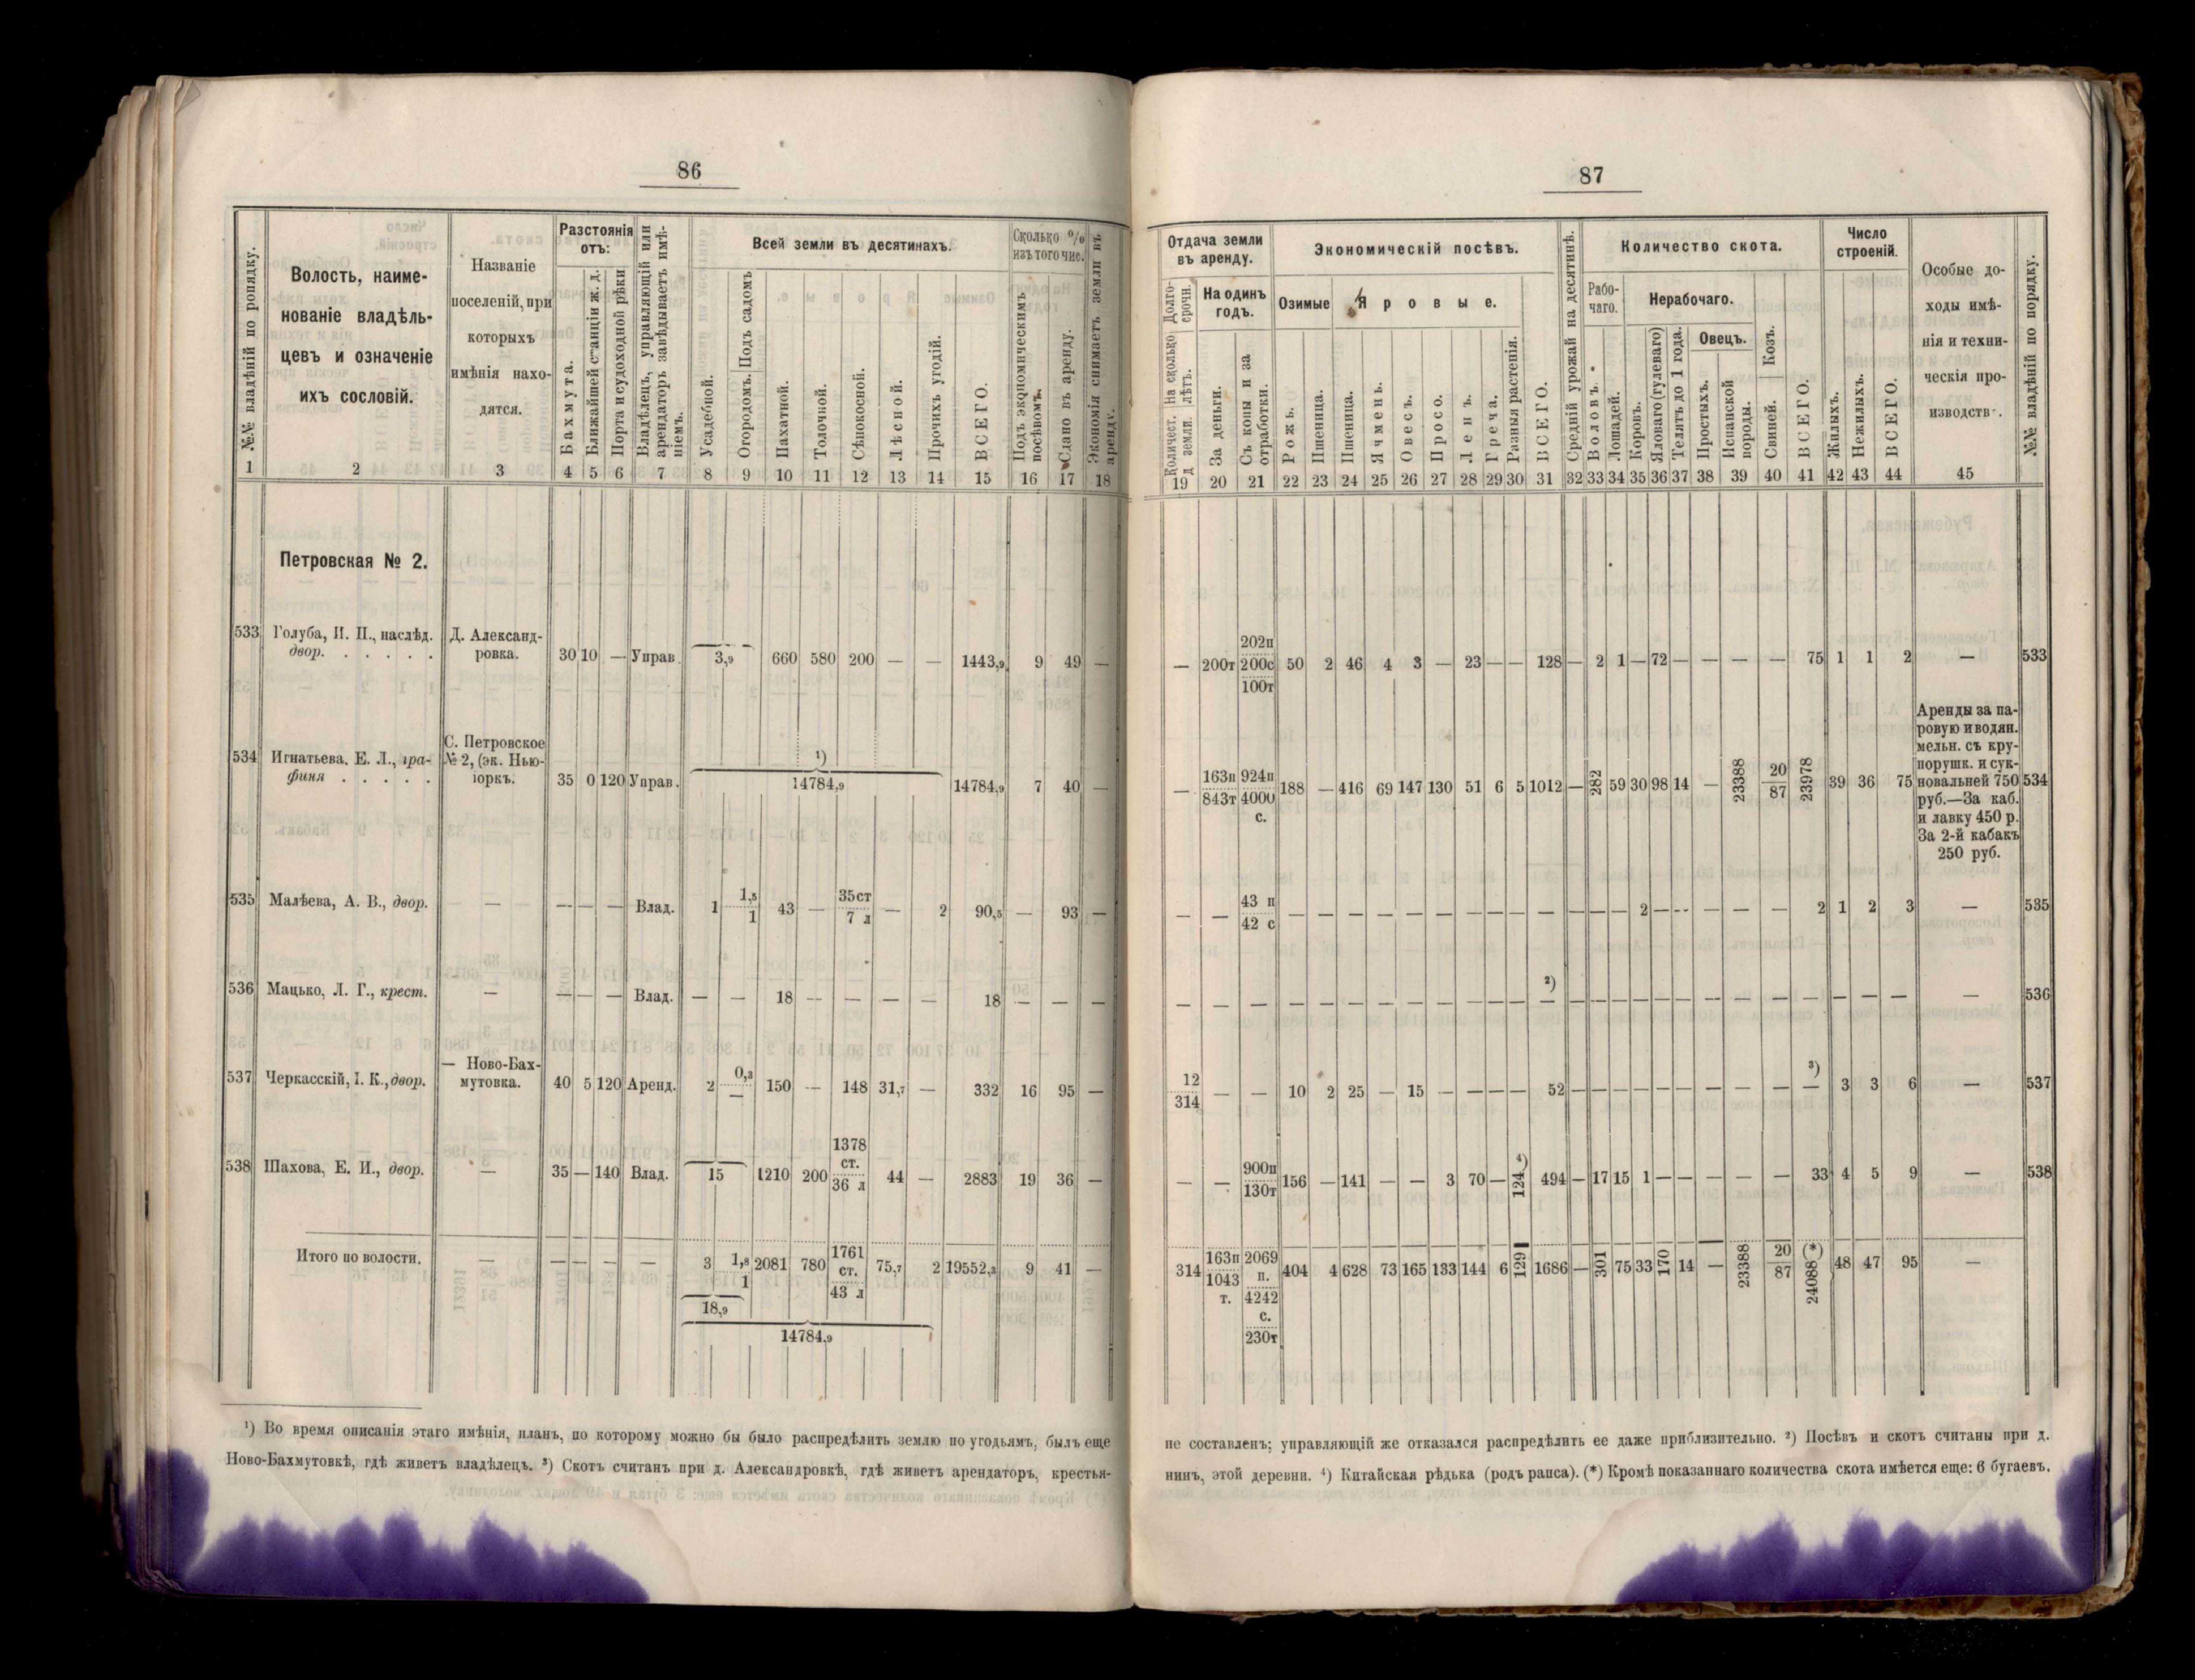 86
№№ владѣній по порядку.
Волость, наиме-
нованіе владѣль-
цевъ и означеніе
ихъ сословій.
Названіе
поселеній, при
которыхъ
имѣнія нахо-
дятся.
Разстоянія
отъ:
Бахмута.
Ближайшей станціи ж. д.
Порта и судоходной рѣки
Владѣлецъ, управляющій или
арендаторъ завѣдываетъ имѣ-
ніемъ.
Всей земли въ десятинахъ.
Усадебной.
Огородомъ. Подъ садомъ
Пахатной.
Толочной.
Сѣнокосной.
Лѣсной.
Прочихъ угодій.
ВСЕГО.
Сколько %
изъ того чис.
Подъ экономическимъ
посѣвомъ.
Сдано въ аренду.
Экономія снимаетъ земли въ
аренду.
1 2 3 4 5 6 7 8 9 10 11 12 13 14 15 16 17 18
Петровская № 2.
533 Голуба, И. П., наслѣд.
двор. . . . . .
Д. Александ-
ровка.
30 10 — Управ. 3,9 660 580 200 — — 1443,9 9 49 —
534 Игнатьева, Е. Л., гра-
финя . . . . .
С. Петровское
№ 2, (эк. Нью-
іоркъ.
35 0 120 Управ. ¹) 14784,9 14784,9 7 40 —
535 Малѣева, А. В., двор. — — — — Влад. 1 1,5 1 43 — 35ст 7 л — 2 90,5 — 93 —
536 Мацько, Л. Г., крест. — — — — Влад. — — 18 -- — — — 18 — — —
537 Черкасскій, І. К., двор.
— Ново-Бах-
мутовка.
40 5 120 Аренд. 2 0,3 — 150 — 148 31,7 — 332 16 95 —
538 Шахова, Е. И., двор. — 35 — 140 Влад. 15 1210 200 1378 ст. 36 л 44 — 2883 19 36 —
Итого по волости. — — — — — 3 1,8 1 2081 780 1761 ст. 43 л 75,7 2 19552,3 9 41 —
18,9
14784,9
¹) Во время описанія этаго имѣнія, планъ, по которому можно бы было распредѣлить землю по угодьямъ, былъ еще
Ново-Бахмутовкѣ, гдѣ живетъ владѣлецъ. ³) Скотъ считанъ при д. Александровкѣ, гдѣ живетъ арендаторъ, крестья-
87
Отдача земли
въ аренду.
Долго-
срочн.
Количест. На сколько
д земли. лѣтъ.
На одинъ
годъ.
За деньги.
Съ копы и за
отработки.
Экономическій посѣвъ.
Озимые
Яровые.
Рожь.
Пшеница.
Пшеница.
Ячмень.
Овесъ.
Просо.
Ленъ.
Греча.
Разныя растенія.
ВСЕГО.
Средній урожай на десятинѣ.
Количество скота.
Рабо-
чаго.
Воловъ.
Лошадей.
Нерабочаго.
Коровъ.
Яловаго (гулеваго)
Телятъ до 1 года.
Овецъ.
Простыхъ.
Испанской
породы.
Свиней. Козъ.
ВСЕГО.
Число
строеній.
Жилыхъ.
Нежилыхъ.
ВСЕГО.
Особые до-
ходы имѣ-
нія и техни-
ческія про-
изводств.
№№ владѣній по порядку.
19 20 21 22 23 24 25 26 27 28 29 30 31 32 33 34 35 36 37 38 39 40 41 42 43 44 45
— 200т 202п 200с 100т 50 2 46 4 3 — 23 — — 128 — 2 1 — 72 — — — — 75 1 1 2 — 533
— 163п 843т 924п 4000 с. 188 — 416 69 147 130 51 6 5 1012 — 282 59 30 98 14 — 23388 20 87 23978 39 36 75
Аренды за па-
ровую и водян.
мельн. съ кру-
порушк. и сук-
новальней 750
руб.—За каб.
и лавку 450 р.
За 2-й кабакъ
250 руб.
534
— — 43 п 42 с — — — — — — — — — — — — — 2 — -- — — — 2 1 2 3 — 535
— — — — — — — — — — — — ²) — — — — — — — — — — — — — — — 536
12 314 — — 10 2 25 — 15 — — — — 52 — — — — — — — — — ³) — 3 3 6 — 537
— — 900п 130т 156 — 141 — — 3 70 — 124 ⁴) 494 — 17 15 1 — — — — — 33 4 5 9 — 538
314 163п 1043 т. 2069 п. 4242 с. 230т 404 4 628 73 165 133 144 6 129 1686 — 301 75 33 170 14 — 23388 20 87 24088 (*) 48 47 95 —
не составленъ; управляющій же отказался распредѣлить ее даже приблизительно. ²) Посѣвъ и скотъ считаны при д.
нинъ, этой деревни. ⁴) Китайская рѣдька (родъ рапса). (*) Кромѣ показаннаго количества скота имѣется еще: 6 бугаевъ.